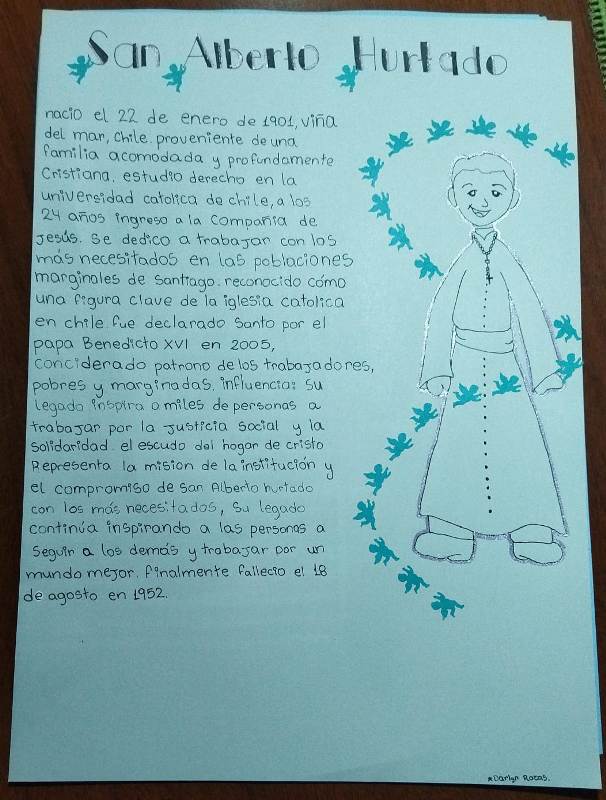 San Alberto Hurtado
nacio el 22 de enero de 1901, viña
del mar, chile. proveniente de una
familia acomodada y profundamente
Cristiana. estudio derecho en la
universidad catolica de chile, a los
24 años ingreso a la compañia de
Jesús. Se dedico a trabajar con los
más necesitados en las poblaciones
marginales de Santiago. reconocido cómo
una figura clave de la iglesia catolica
en chile. fue declarado Santo por el
papa Benedicto XVI en 2005,
conciderado patrono de los trabajadores,
pobres y marginadas. influencia: Su
legado inspira a miles de personas a
trabajar por la justicia social y la
solidaridad. el escudo del hogar de cristo
Representa la mision de la institución y
el compromiso de San Alberto hurtado
con los más necesitados, Su legado
continúa inspirando a las personas a
Seguir a los demás y trabajar por un
mundo mejor. finalmente fallecio el 18
de agosto en 1952.
★Darlyn Rozas.